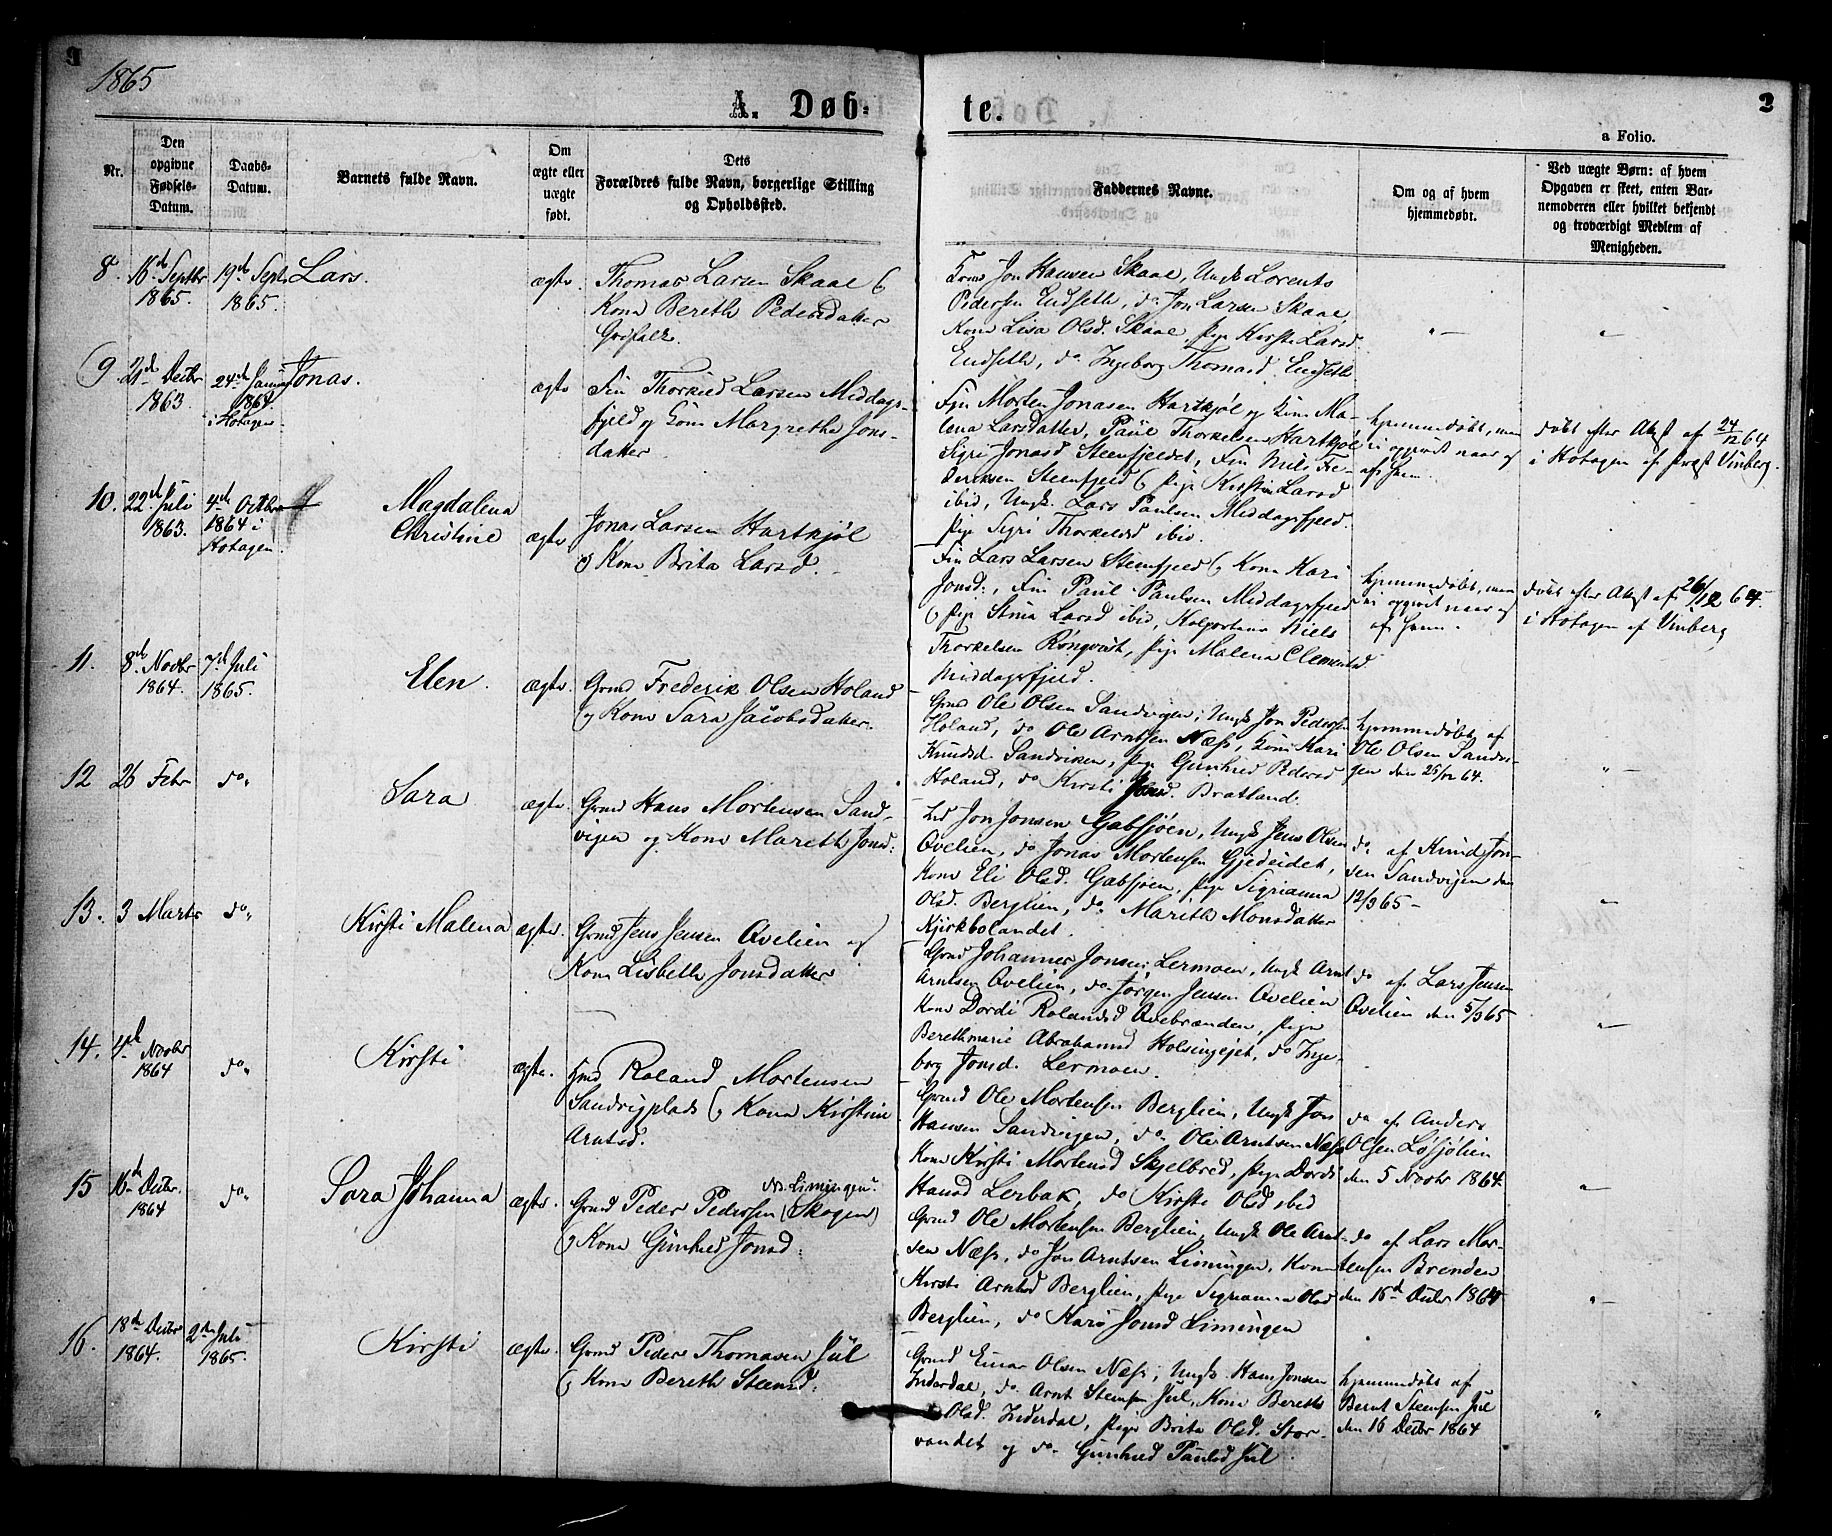 1865
A. Døb-
te.
2
a Folio.
Nr.
Den
opgivne
Fødsels-
Datum.
Daabs-
Datum.
Barnets fulde Navn.
Om
ægte eller
uægte
født.
Dets
Forældres fulde Navn, borgerlige Stilling
og Opholdssted.
Faddernes Navne.
Om og af hvem
hjemmedøbt.
Ved uægte Børn: af hvem
Opgaven er skeet, enten Bar-
nemoderen eller hvilket bekjendt
og troværdigt Medlem af
Menigheden.
8.
16de Septbr
1865.
19de Septr
1865.
Lars.
ægte
Thomas Larsen Skaal
Kone Bereth Pedersdatter
Jon Hansen Skaal, Ungk Lorents
Pedersen Endseth, do Jon Larsen Skaal,
Kone Lisa Olsd. Skaal, Pige Kirste Larsd.
Endseth, do Ingeborg Thomasd. Endseth
9
21de Decbr
1863.
24de Januar
1864.
i Hotagen
Jonas.
ægte
Fin Thorkild Larsen Middags-
fjeld og Kone Margrethe Jons-
datter.
Fin Morten Jonasen Hartkjøl og Kone Ma-
lena Larsdatter, Paul Thorkelsen Hartkjøl
Sigri Jonasd Steenfjeldet, Fin Nils Fre-
deriksen Steenfjeld og Pige Kirstin Larsd
ibid, Ungk. Lars Paulsen Middagsfjeld.
Pige Sigri Thorkelsd ibid.
hjemmedøbt, men
ei opgivet naar og
af hvem.
døbt efter Attest af 24/12 64
i Hotagen af Præst Vinberg.
10.
22de Juli
1863.
4de Octbr
1864 i
Hotagen.
Magdalena
Christine
ægte
Jonas Larsen Hartkjøl
og Kone Brita Larsd.
Fin Lars Larsen Steenfjeld og Kone Kari
Jonsd:, Fin Paul Paulsen Middagsfjeld
og Pige Stina Larsd ibid, Kolportør Niels
Thorkelsen Rønqvist, Pige Malena Clementsd
Middagsfjeld.
hjemmedøbt, men
ei opgivet naar og
af hvem.
døbt efter Attest af 26/12 64.
i Hotagen af Vinberg
11.
8de Novbr
1864.
7de Juli
1865.
Elen.
ægte.
Grmd Frederik Olsen Holand
og Kone Sara Jacobsdatter.
Grmd Ole Olsen Sandvigen; Ungk Jon Pedersen
Holand, do Ole Arntsen Næss, Kone Kari
Knudsd. Sandviken, Pige Gunhild Pedersd
Holand, do Kirsti Jonsd. Bratland.
hjemmedøbt af
Ole Olsen Sandvi-
gen den 25/12 64.
"
12
26 Febr
do"
Sara
ægte.
Grmd Hans Mortensen Sand-
vigen og Kone Mareth Jonsd:
Jon Jonsen Gabsjøen, Ungk Jens Olsen
Qvelien, do Jonas Mortensen Gjedeidet,
Kone Eli Olsd. Gabsjøen, Pige Sigrianna
Olsd. Berglien, do Marith Monsdatter
Kjirkbolandet.
do af Knud Jon-
sen Sandvigen den
12/3 65 -
"
13.
3 Marts
do"
Kirsti Malena
ægte.
Grmd Jens Jensen Qvelien og
Kone Lisbeth Jonsdatter
Grmd Johannes Jonsen Lermoen, Ungk Arnt
Arntsen Qvelien, do Jørgen Jensen Qvelien
Kone Dordi Rolandsd Qvebrænden, Pige
Berethmarie Abrahamsd Holsingejet, do Inge-
borg Jonsd. Lermoen.
do af Lars Jensen
Qvelien den 5/3 65
"
14.
4de Novbr
1864
do"
Kirsti
ægte.
Roland Mortensen
Sandvigplads og Kone Kirstine
Arntsd.
Grmd Ole Mortensen Berglien, Ungk Jon
Hansen Sandvigen, do Ole Arntsen Næss
Kone Kirsti Mortensd Skjelbred, Pige Dordi
Hansd Lerbak, do Kirsti Olsd ibid
do af Anders
Olsen Løsjølien
den 5 Novbr 1864.
"
15
16de Decbr.
1864
do"
Sara Johanna
ægte.
N. Limingen
Grmd Peder Pedersen (Skogen)
og Kone Gunhild Jonsd:
Grmd Ole Mortensen Berglien, Ungk Ole Arnt-
sen Næss, do Jon Arntsen Limingen, Kone
Kirsti Arntsd Berglien, Pige Sigrianna Olsd
Berglien, do Kari Jonsd Limingen
do af Lars Mor-
tensen Brenden
den 18de Decbr 1864
"
16.
18de Decbr
1864.
2den Juli
1865.
Kirsti
ægte.
Grmd Peder Thomasen Jul
og Kone Bereth Steensd:
Grmd Einar Olsen Næss; Ungk. Hans Jonsen
Inderdal, do. Arnt Steensen Jul, Kone Bereth
Olsd. Inderdal, Pige Brita Olsd. Stor-
vandet og do Gunhild Paulsd Jul.
hjemmedøbt af
Bernt Steensen Jul
den 16 Decbr 1864
"